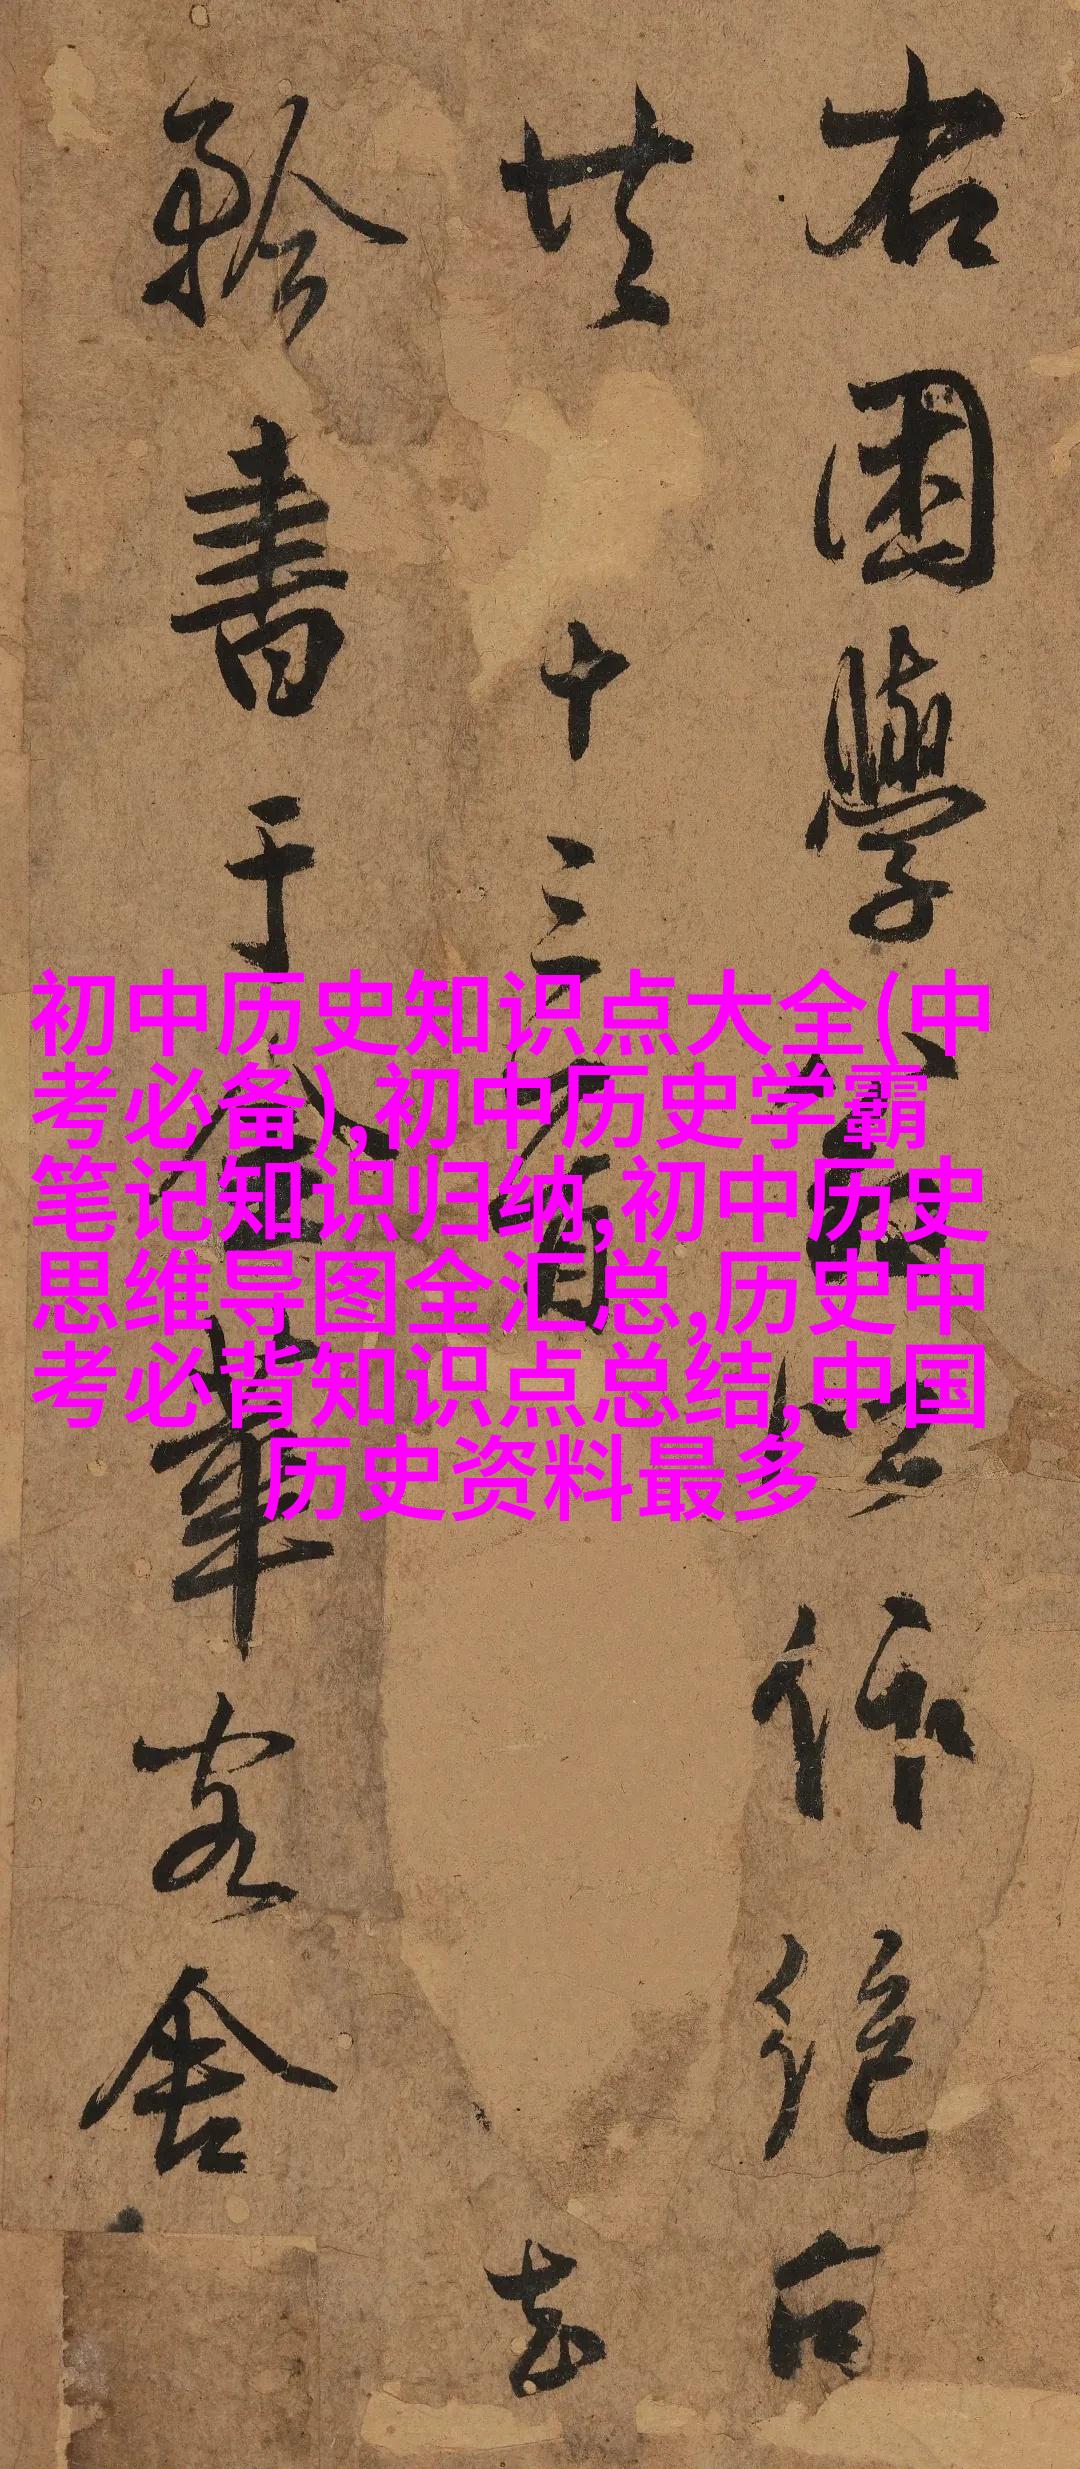 右困學作絕句
十三
書于客舍
初中历史知识点大全(中
考必备),初中历史学霸
笔记知识归纳,初中历史
思维导图全汇总,历史中
考必背知识点总结,中国
历史资料最多